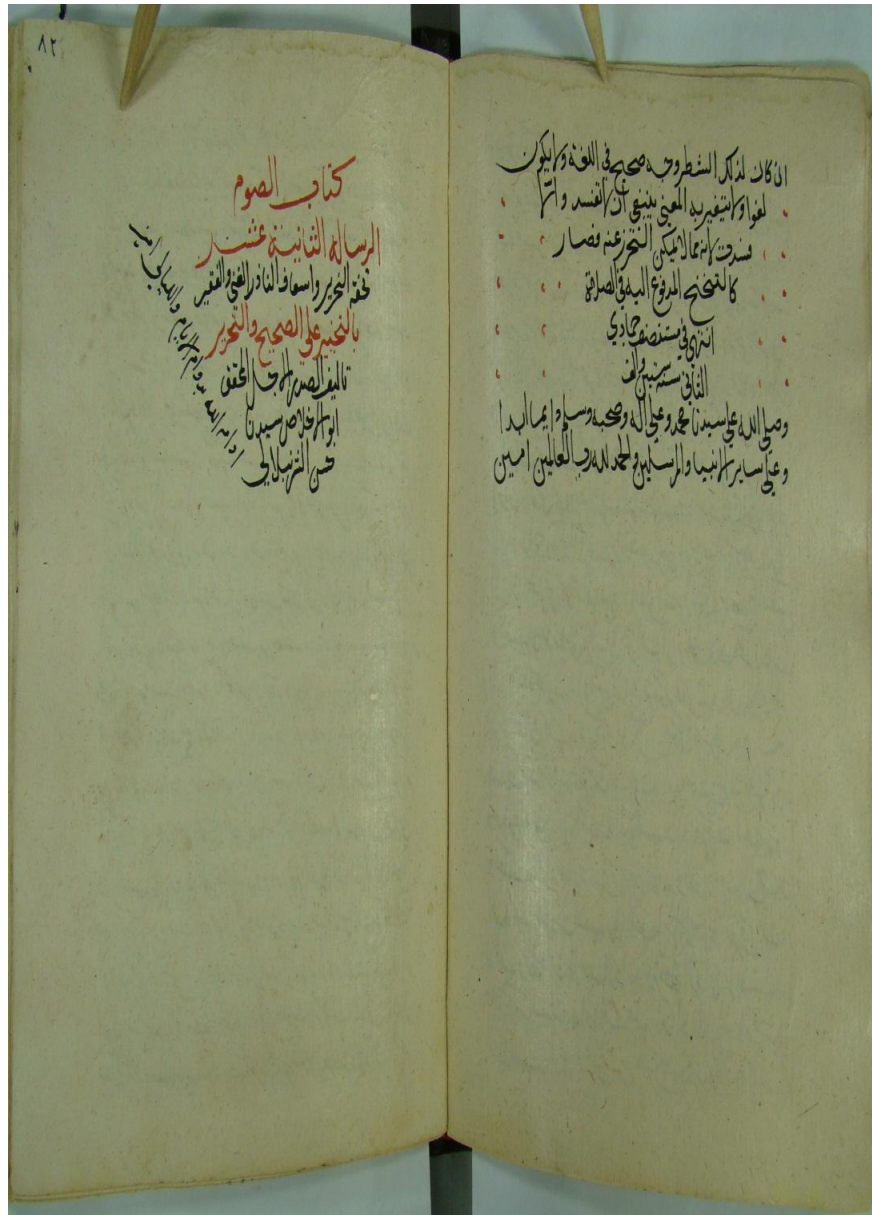 ان كان لذلك الشطر وجه صحيح في اللغة ولا يكون
لغوا ولا يتغير به المعنى ينبغي ان لا تفسد وانما
فسدت لانه مما لا يمكن التحرز عنه فصار
كالتنحنح المدفوع اليه في الصلاة
انتهى في مستنصف جمادي
الثاني سنة ستين والف
وصلى الله على سيدنا محمد وعلى اله وصحبه وسلم دايما ابدا
وعلى ساير الانبيا والمرسلين والحمد لله رب العالمين امين
٨٢
كتاب الصوم
الرسالة الثانية عشر
تحفة التحرير واسعاف الناذر الغني والفقير
بالتخيير على الصحيح والتحرير
تاليف الصدر الاجل المحقق
ابو الاخلاص سيدنا
حسن الشرنبلالي
ادام الله الايام والليالي امين